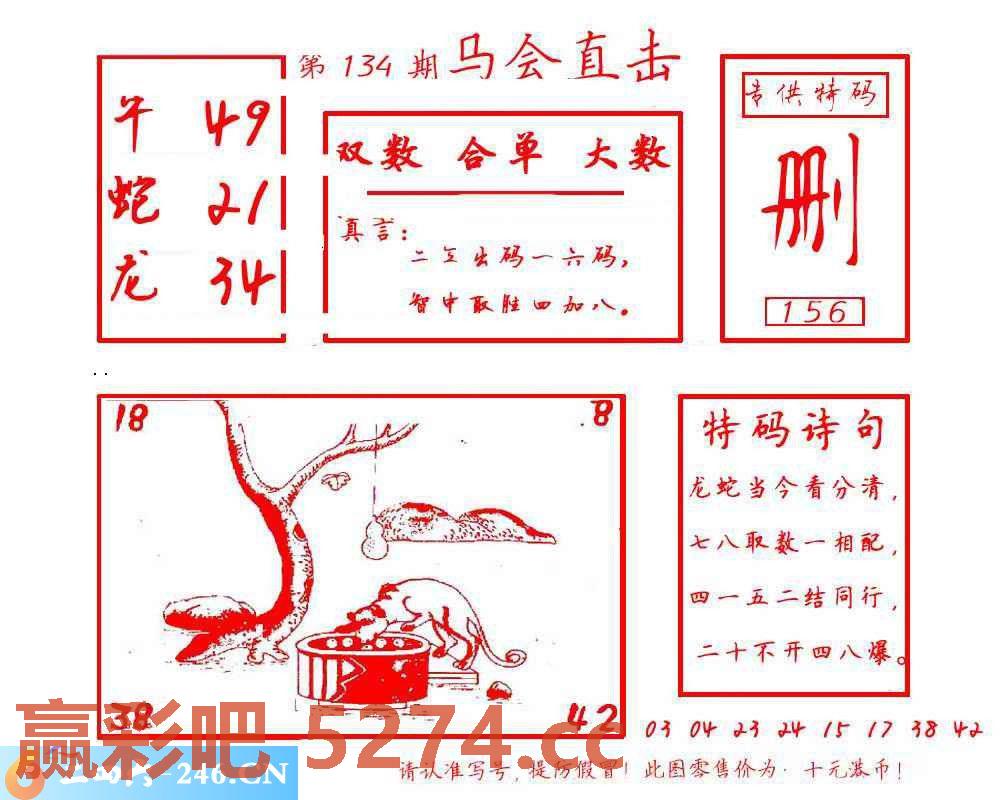 第134期 马会直击
牛 49
蛇 21
龙 34
双数 合单 大数
真言:
二至出码一六码,
智中取胜四加八。
专供特码
删
156
18
8
38
42
特码诗句
龙蛇当今看分清,
七八取数一相配,
四一五二结同行,
二十不开四八爆。
03 04 23 24 15 17 38 42
赢彩吧 5274.cc
246.CN
请认准写号,提防假冒!此图零售价为·十元港币!